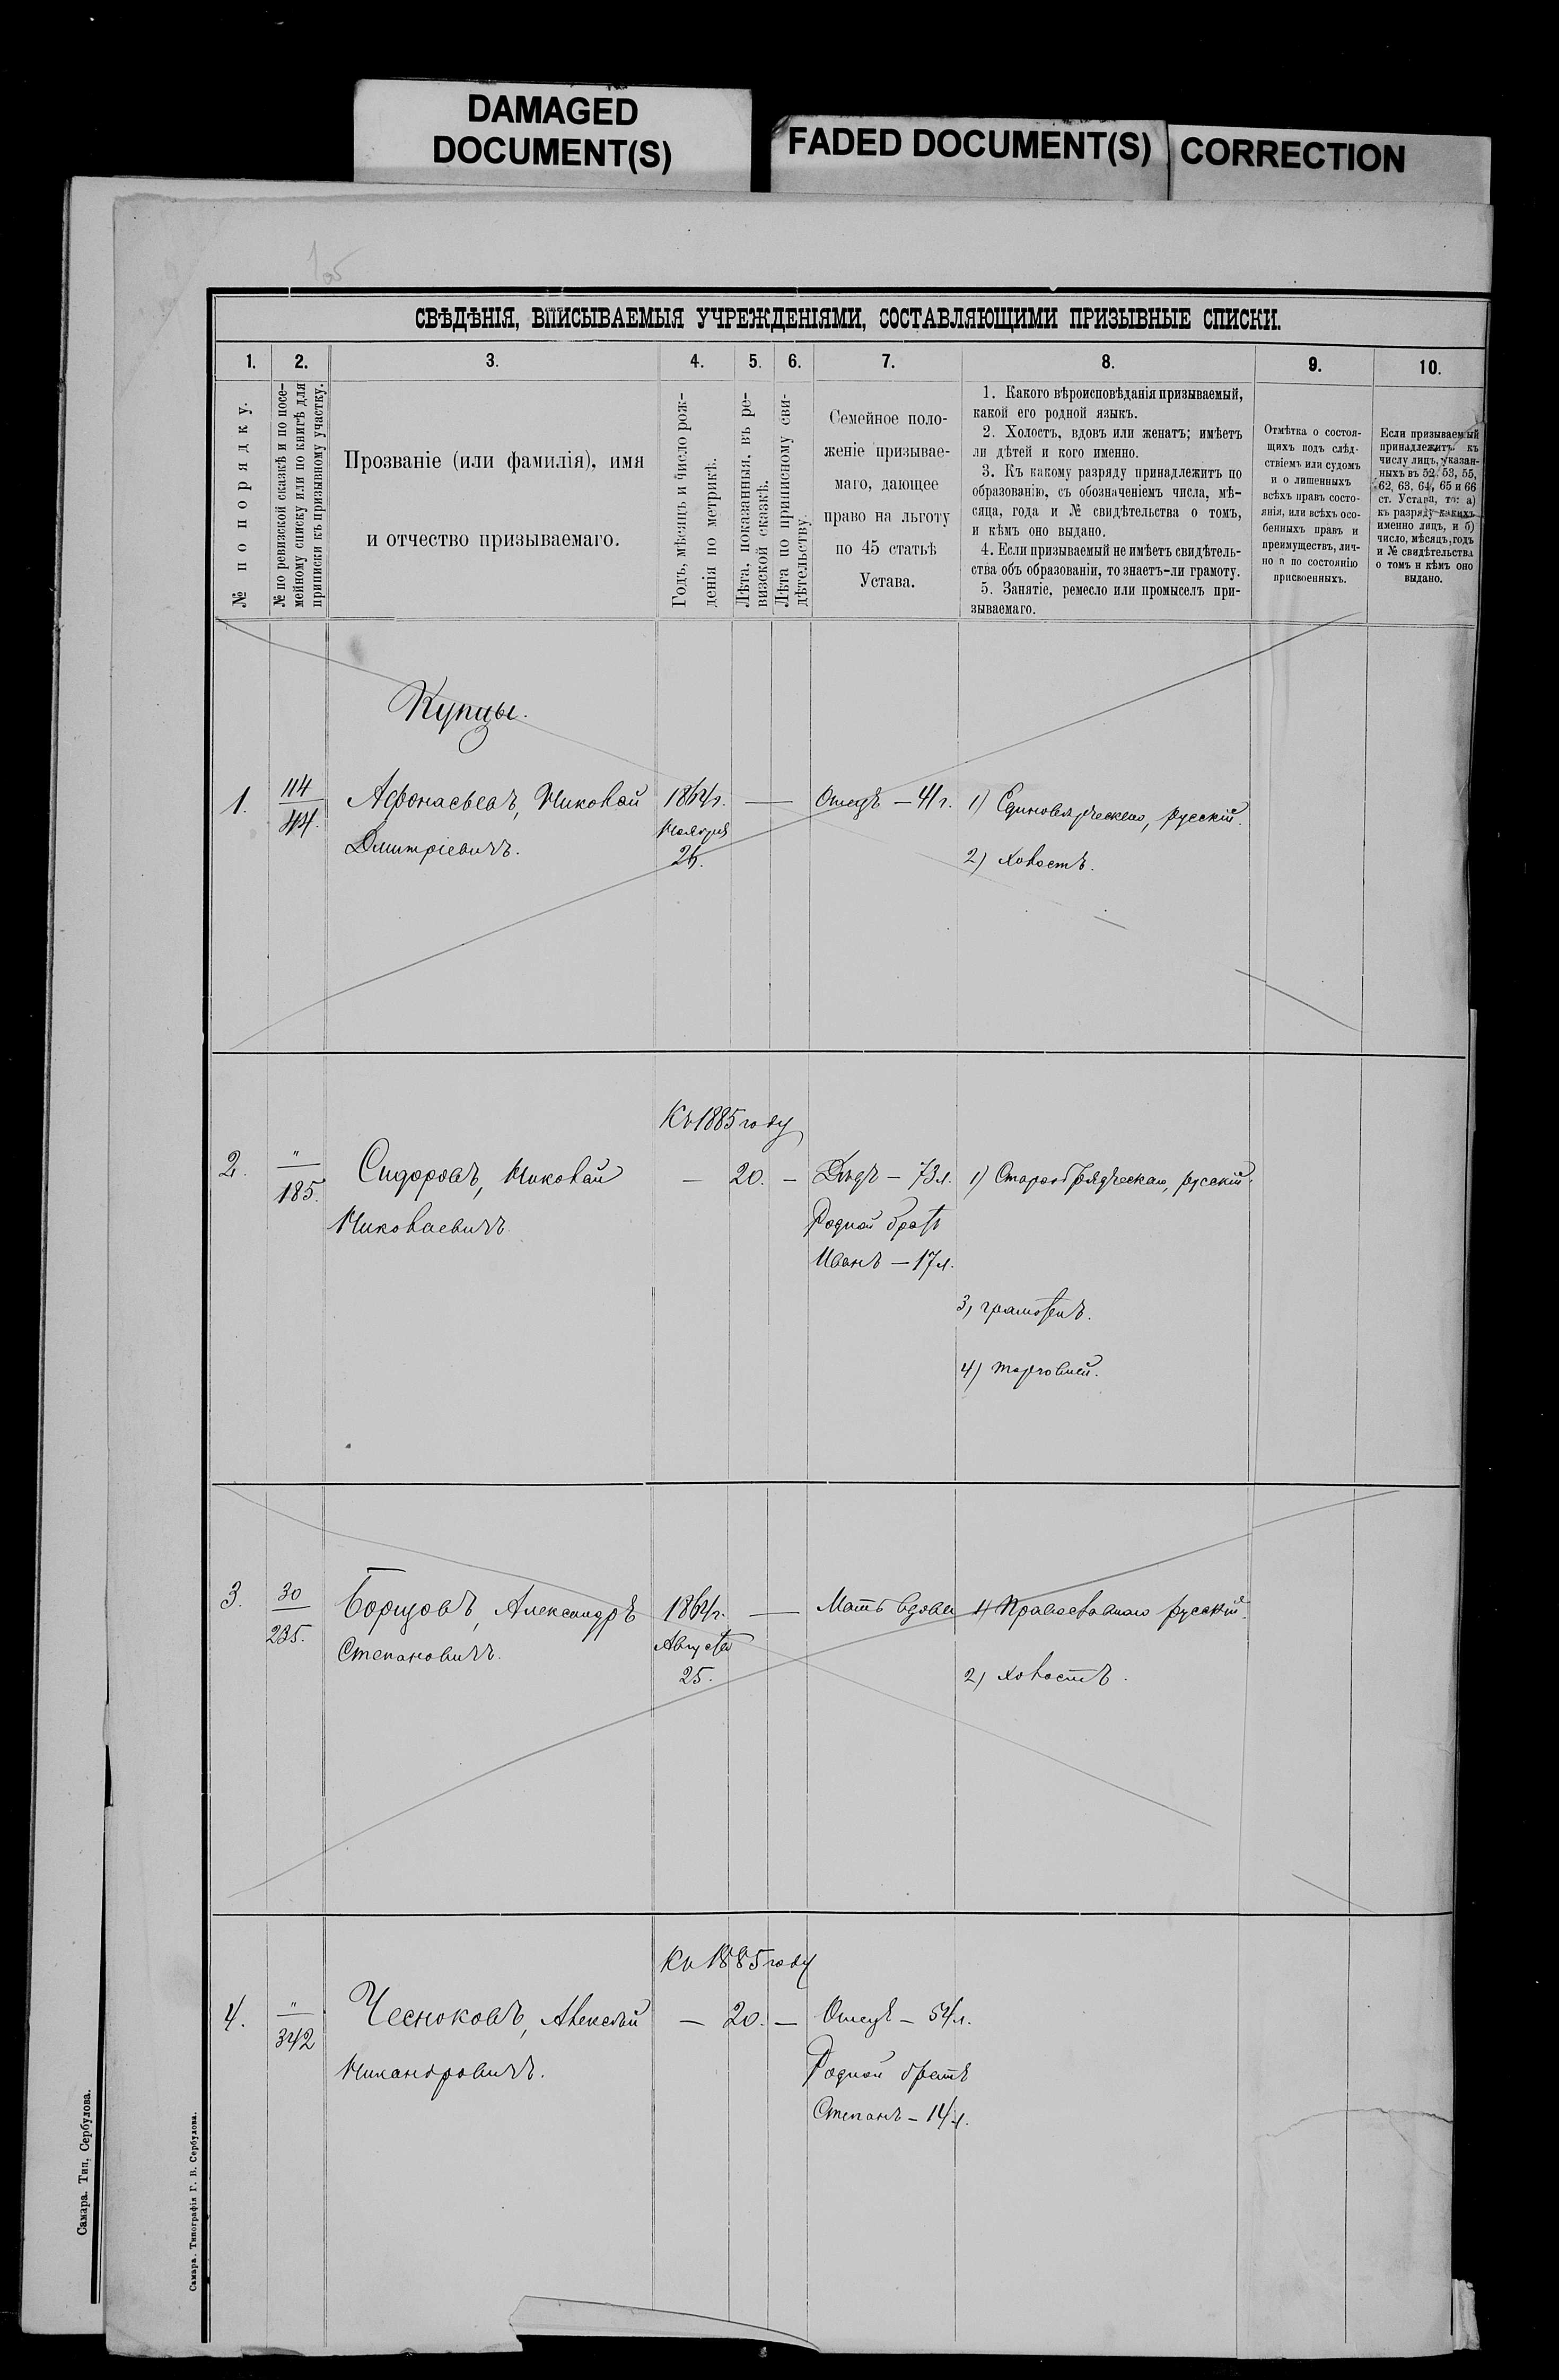 DAMAGED
DOCUMENT(S)
FADED DOCUMENT(S)
CORRECTION
СВѢДѢНІЯ, ВПИСЫВАЕМЫЯ УЧРЕЖДЕНІЯМИ, СОСТАВЛЯЮЩИМИ ПРИЗЫВНЫЕ СПИСКИ.
1. 2. 3. 4. 5. 6. 7. 8. 9. 10.
№ по порядку.
№ по ревизской сказкѣ и по посе-
мейному списку или по книгѣ для
приписки къ призывному участку.
Прозваніе (или фамилія), имя
и отчество призываемаго.
Годъ, мѣсяцъ и число рож-
денія по метрикѣ.
Лѣта, показанныя, въ ре-
визской сказкѣ.
Лѣта по приписному сви-
дѣтельству.
Семейное поло-
женіе призывае-
маго, дающее
право на льготу
по 45 статьѣ
Устава.
1. Какого вѣроисповѣданія призываемый,
какой его родной языкъ.
2. Холостъ, вдовъ или женатъ; имѣетъ
ли дѣтей и кого именно.
3. Къ какому разряду принадлежитъ по
образованію, съ обозначеніемъ числа, мѣ-
сяца, года и № свидѣтельства о томъ,
и кѣмъ оно выдано.
4. Если призываемый не имѣетъ свидѣтель-
ства объ образованіи, то знаетъ-ли грамоту.
5. Занятіе, ремесло или промыселъ при-
зываемаго.
Отмѣтка о состоя-
щихъ подъ слѣд-
ствіемъ или судомъ
и о лишенныхъ
всѣхъ правъ состо-
янія, или всѣхъ осо-
бенныхъ правъ и
преимуществъ, лич-
но и по состоянію
присвоенныхъ.
Если призываемый
принадлежитъ къ
числу лицъ, указан-
ныхъ въ 52, 53, 55,
62, 63, 64, 65 и 66
ст. Устава, то: а)
къ разряду какихъ
именно лицъ, и б)
число, мѣсяцъ, годъ
и № свидѣтельства
о томъ и кѣмъ оно
выдано.
Купцы.
1. 114 Афонасьевъ, Николай 1864г. — Отецъ — 41г. 1) Единовѣрческаго, русскій.
44. Дмитріевичъ. Ноября
26. 2) холостъ.
Къ 1885 году
2. " Сидоровъ, Николай — 20. — Дѣдъ — 73л. 1) Старообрядческаго, русскій.
185. Николаевичъ Родной братъ
Иванъ — 17л.
3) грамотенъ.
4) торговлей.
3. 30 Борщовъ, Александръ 1864г. — Мать вдова 1) Православнаго русскій.
235. Степановичъ. Августа
25. 2) холостъ.
Къ 1885 году
4. " Чесноковъ, Алексѣй — 20. — Отецъ — 54л.
342 Никандровичъ. Родной братъ
Степанъ — 14л.
Самара. Тип. Сербулова.
Самара. Типографія Г. В. Сербулова.